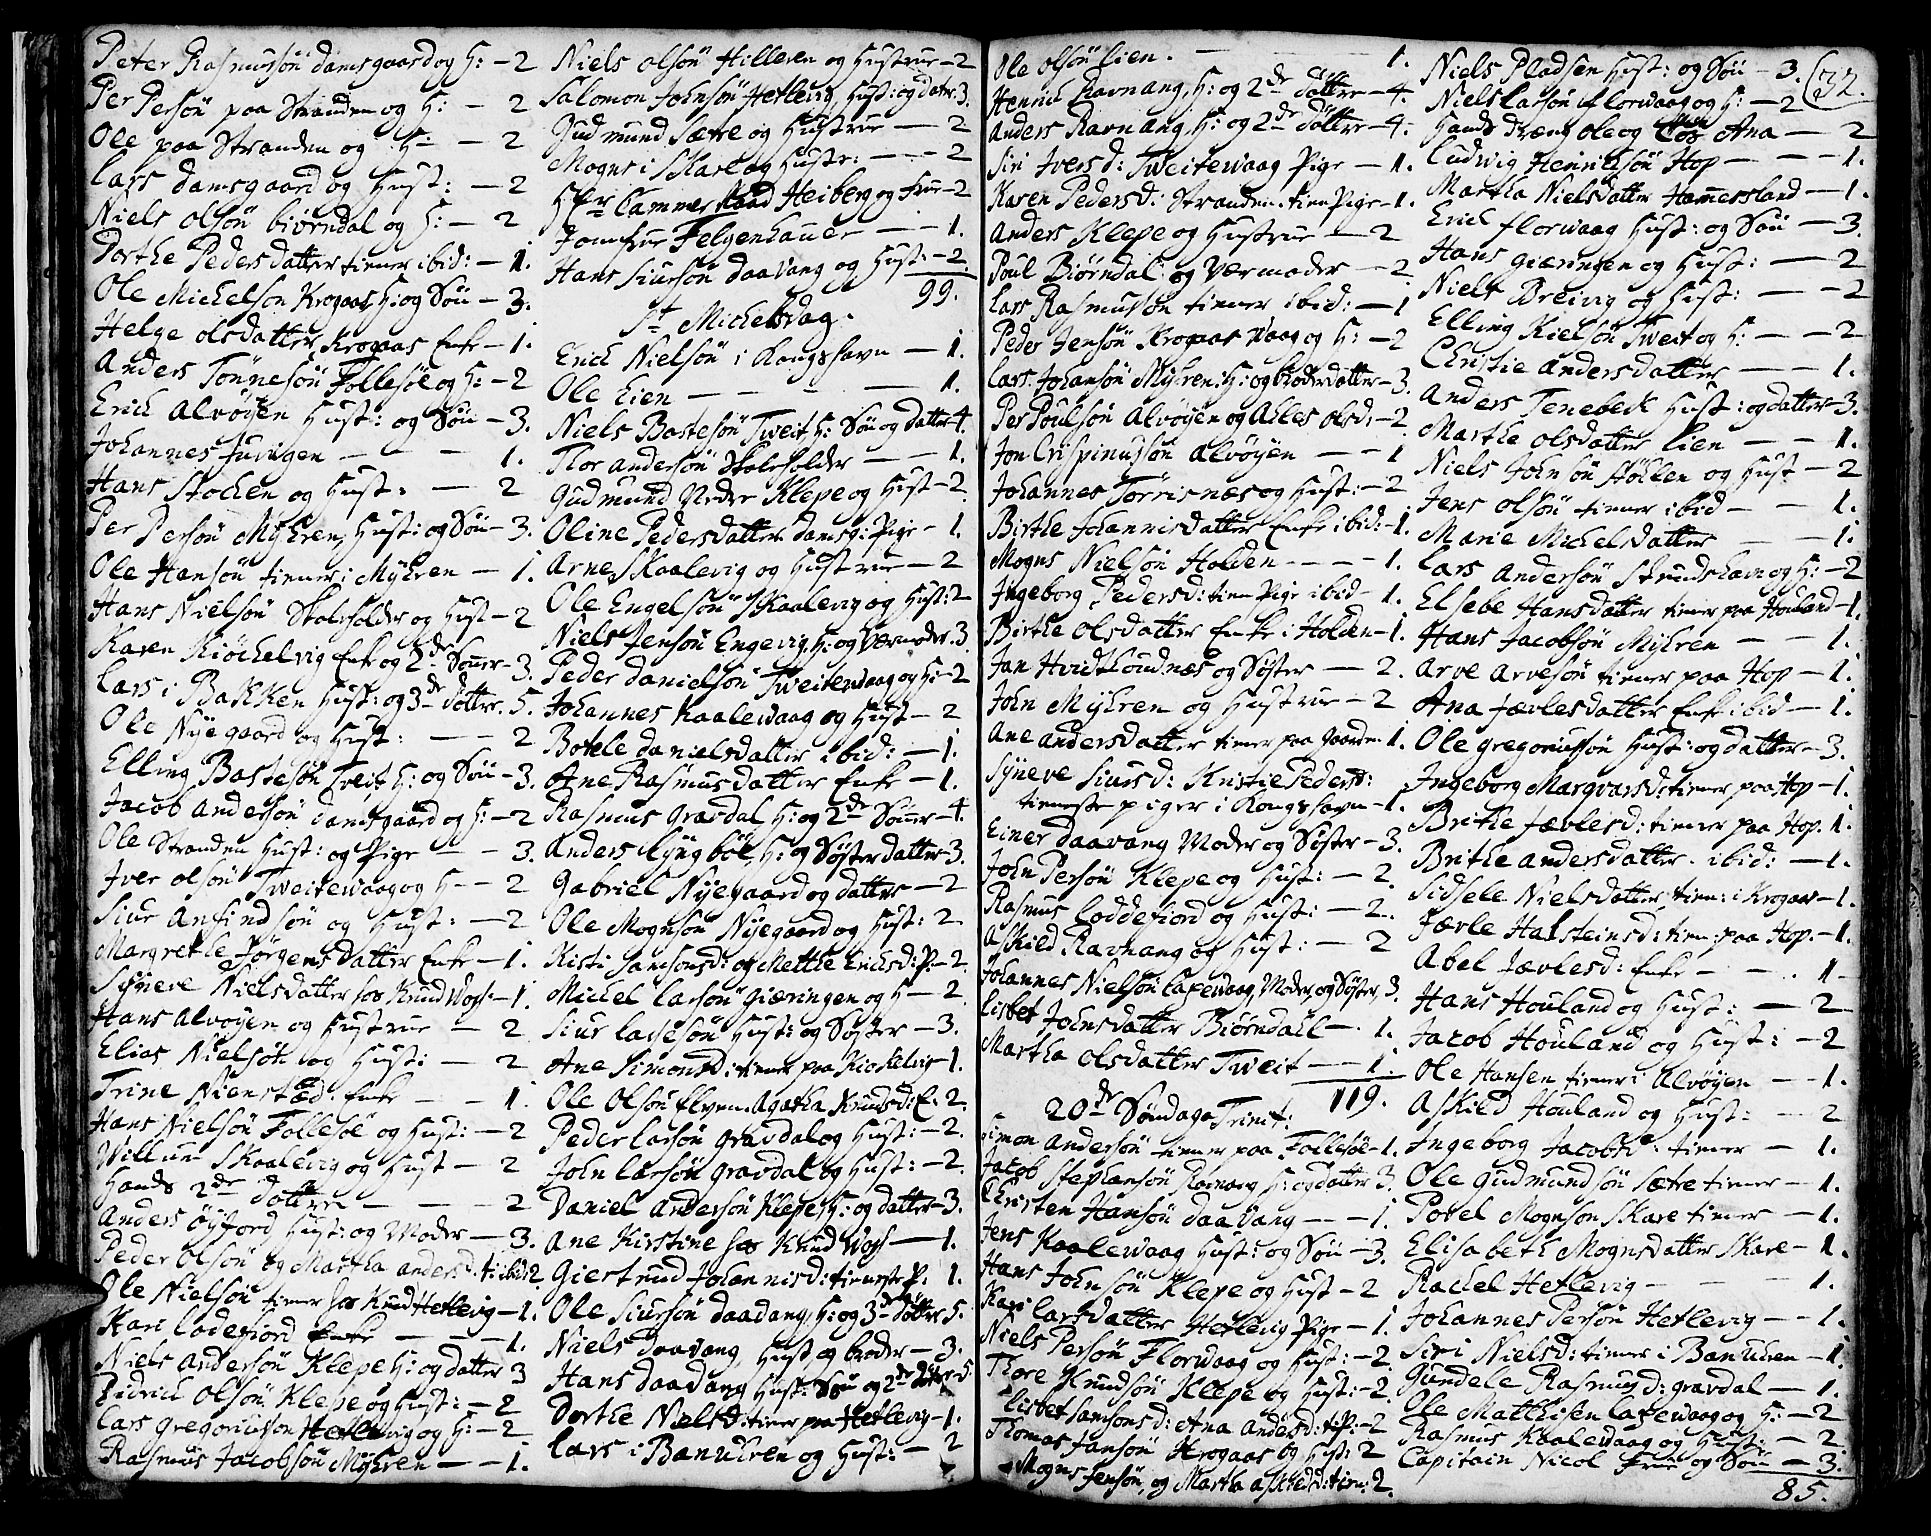 Peter Rasmusøn damsgaard og H: — 2
Per Persøn paa Stranden og H: — 2
Ole paa Stranden og H: — 2
Lars damsgaard og Hust: — 2
Niels Olsøn biørndal og H: — 2
Dorthe Pedersdatter tiener ibid: — 1.
Ole Michelsøn Krogaas H: og Søn — 3.
Helge olsdatter Krogaas Enke — 1.
Anders Tønnesøn Follesøe og H: — 2
Erich Alvøyen Hust: og Søn — 3.
Johannes — — 1.
Hans Stochen og Hust: — 2
Per Persøn Myhren, Hust: og Søn — 3.
Ole Hansøn tiener i Myhren — 1.
Hans Nielsøn Skoleholder og Hust — 2
Karen Kiøchelvig Enke og 2de Sønner — 3.
Lars i Bakken Hust: og 3de døttre. 5.
Ole Nyegaard og Hust: — — 2
Elling Bastesøn Tveit H: og Søn — 3.
Jacob Andersøn damsgaard og H: — 2
Ole Stranden Hust: og Pige — — 3.
Iver olsøn Tweitewaag og H — 2
Siur Anfindsøn og Hust: — 2
Margrethe Jørgensdatter Enke — 1.
Synneve Nielsdatter hos Knud Wogs — 1.
Hans Alvøyen og Hustrue — 2
Elias Nielsøn og Hust: — 2
Trine Nienstæd Enke — — 1.
Hans Nielsøn Follesøe og Hust: — 2
Willum Skaalevig og Hust — 2
Hands 2de døttre — — — 2
Anders øyjord Hust: og Moder — 3.
Peder Olsøn og Martha andersd: t: ibid: 2
Ole Nielsøn tiener hos Knud Hetlevig — 1.
Kari Lodefiord Enke — — — 1.
Niels Andersøn Klepe H: og datter 3
Didrich Olsøn Klepe og Hust: — 2
Lars Gregoriusøn Hetlevig og H: — 2
Rasmus Jacobsøn Myhren — — 1.
Niels Olsøn Hilleren og Hustrue — 2
Salomon Johnsøn Hetlevig, Hust: og dater. 3.
Gudmund Sætre og Hustrue — 2
Mogns i Skare og Hustr: — — 2
Hr Cammer Raad Heiberg og Frue — 2
Jomfrue Felgenhauer — — 1.
Hans Siursøn daavang og Hust: — 2
99.
St Michelsdag.
Erich Nielsøn i Kongshavn — 1.
Ole Lien — — — 1.
Niels Bastesøn Tweit H: Søn og datter 4.
Thor Andersøn Skoleholder — — 1.
Gudmund Nedre Klepe og Hust — 2.
Oline Pedersdatter damsg: Pige — 1.
Arne Skaalevig og Hustrue — 2
Ole Engelsøn Skaalevig og Hust: 2
Niels Jensøn Engevig, H: og Værmoder. 3.
Peder danielsøn Tweitewaag og H: — 2
Johannes Kaalewaag og Hust — 2
Botele danielsdatter ibid: — 1.
Ane Rasmusdatter Enke — 1.
Rasmus Gravdal H: og 2de Sønner — 4.
Anders Lyngbøe, H: og Søsterdatter 3.
Gabriel Nyegaard og datter — 2
Ole Mognsøn Nyegaard og Hust: 2
Kisti Samsonsd: og Metthe Erichsd: P. — 2.
Michel Larsøn Giæringen og H — 2.
Siur Lassesøn Hust: og Søster — 3.
Ane Simonsd: tiener paa Kiøkelvig 1.
Ole Olsøn Elven. Agatha Knudsd: E. 2.
Peder Larsøn Gravdal og Hust: — 2.
John Larsøn Gravdal og Hust: — 2.
Daniel Andersøn Klepe H: og datter 3.
Ane Kirstine hos Knud Wogs — 1.
Giertrud Johannisd: tieneste P. 1.
Ole Siursøn daadang, H: og 3de døttre 5.
Niels Daavang, Hust og broder — 3.
Hans daadang Hust: Søn og 2de døttre 5.
Dorthe Nielsd: tiener paa Hetlevig — 1.
Lars i Banuhren og Hust: — 2
Ole olsøn Lien. — — 1.
Henrich Ravnang, H: og 2de døttre — 4.
Anders Ravnang, H: og 2de døttre — 4.
Siri Iversd: Tweitewaag Pige — 1.
Karen Pedersd: Stranden. tien Pige — 1.
Anders Klepe og Hustrue — 2
Poul Biørndal og Værmoder — 2
Lars Rasmusøn tiener ibid: — 1
Peder Jensøn Krogaas Waag og H: — 2
Lars Johansøn Myhren: H: og Broderdatter — 3.
Per Poulsøn Alvøyen og Alles olsd: — 2.
Jon Crispinusøn Alvøyen — — 1
Johannes Tørrisnæs og Hust: — 2
Birthe Johannisdatter Enke ibid: — 1.
Mogns Nielsøn Holden — — — 1.
Ingeborg Pedersd: tien Pige ibid — 1.
Birthe Olsdatter Enke i Holden — 1.
Jan Hvidt Loudnæs og Søster — 2.
John Myhren og Hustrue — 2
Ane andersdatter tiener paa gaarden 1.
Syneve Siursd: Kristie Pedersd:
tieneste piger i Kongshavn — 1.
Einer daavang Moder og Søster — 3.
John Persøn Klepe og Hust: — 2.
Rasmus Loddefiord og Hust: — 2.
Askild Ravnang og Hust: — 2
Johannes Nielsøn Casewaag, Moder, og Søster, 3.
Lisbet Johnsdatter Biørndall — 1.
Martha Olsdatter Tweit — 1.
119.
20de Søndag Trinit:
Simon Andersøn tiener paa Follesøe — 1.
Jacob Stephansøn Ravnang H: og datter 3.
Christen Hansøn daavang — — 1.
Jens Kaalewaag Hust: og Søn — 3.
Hans Johnsøn Klepe og Hust — 2
Kari Larsdatter Hetlevig Pige — 1.
Niels Persøn Florwaag og Hust: — 2.
Thore Knudsøn Klepe og Hust: — 2.
Lisbet Samsonsd: Ana Andersd: t: P: — 2
Thomas Jansøn Krogaas og Hust: 2
Mogns Jensøn, og Martha Askildsd: tien: 2.
32.
Niels Pladsen Hust: og Søn — 3.
Niels Larsøn Florwaag og H: — 2
Hands dreng Ole og Ana — 2
Ludwig Henrichsøn Hop — — — 1.
Martha Nielsdatter Hamessland — 1.
Erich Florwaag Hust: og Søn — 3.
Hans Giæringen og Hust: — 2
Niels Breivig og Hust: — 2
Elling Kielsøn Tweit og H: — — 2
Christie andersdatter — — 1.
Anders Tenebeck Hust: og datter 3.
Marthe Olsdatter Lien — — 1.
Niels Johnsøn Støhlen og Hust — 2
Jens Olsøn tiener ibid — — 1.
Marie Michelsdatter — — 1.
Lars Andersøn Strudshavn og H: — 2
Elsebe Hansdatter tiener paa Houland — 1.
Hans Jacobsøn Myhren — — 1.
Arve Arvesøn tiener paa Hop — 1.
Ana Jævlesdatter Enke ibid — 1.
Ole Gregoriussøn Hust: og datter — 3.
Ingeborg Marqvarsd: tiener paa Hop — 1.
Brithe Jævlesd: tiener paa Hop. 1.
Brithe Andersdatter. ibid: — 1.
Sidsele Nielsdatter, tien: i Krogaas — 1.
Jævle Halsteinsd: tien: paa Hop. — 1.
Abel Jævlesd: Enke — — . 1
Hans Houland og Hust: — 2
Jacob Houland og Hust: — 2
Ole Hansen tiener i Alvøyen — — 1.
Askild Houland og Hust: — 2
Ingeborg Jacobsd: tiener — 1.
Ole Gudmundsøn Sætre tiener — 1.
Povel Mognsøn Skare tiener — 1.
Elisabeth Mognsdatter Skare — 1.
Rachel Hetlevig — — — 1.
Johannes Persøn Hetlevig — — 1.
Siri Nielsd: tiener i Banuhren — 1.
Gundele Rasmusd: gravdal — 1.
Ole Mathisen Casewaag og H: — 2
Rasmus Kaalewaag og Hust: — 2.
Capitain Nicol Frue og Søn — 3.
85.